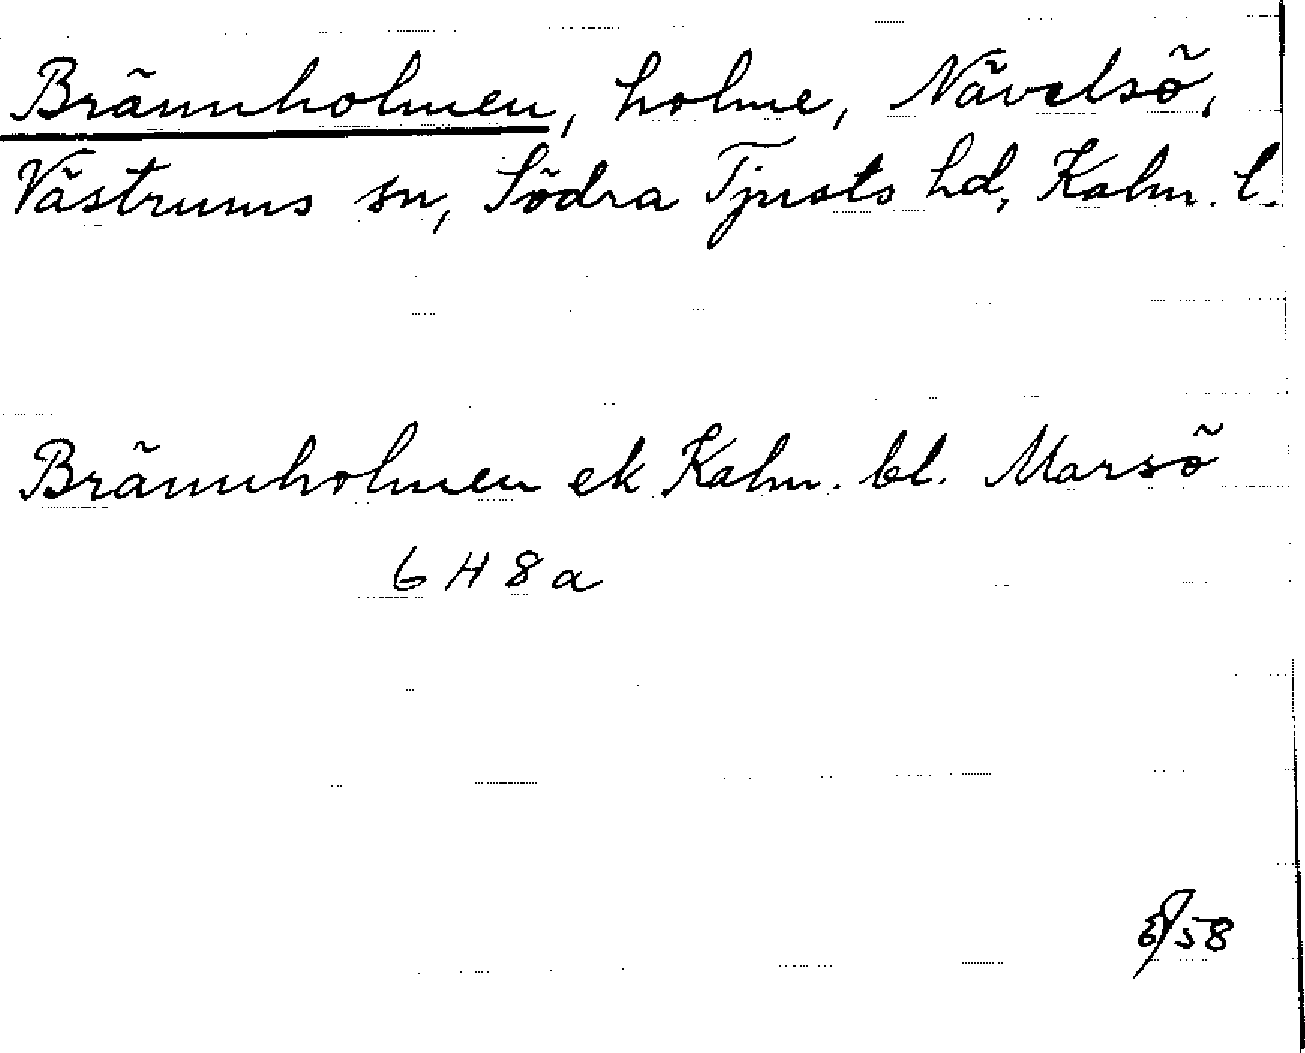 Brännholmen, holme, Nävelsö,
Västrums sn, Södra Tjusts hd, Kalm. l.
Brännholmen ek Kalm. bl. Marsö
6 H 8 a
58